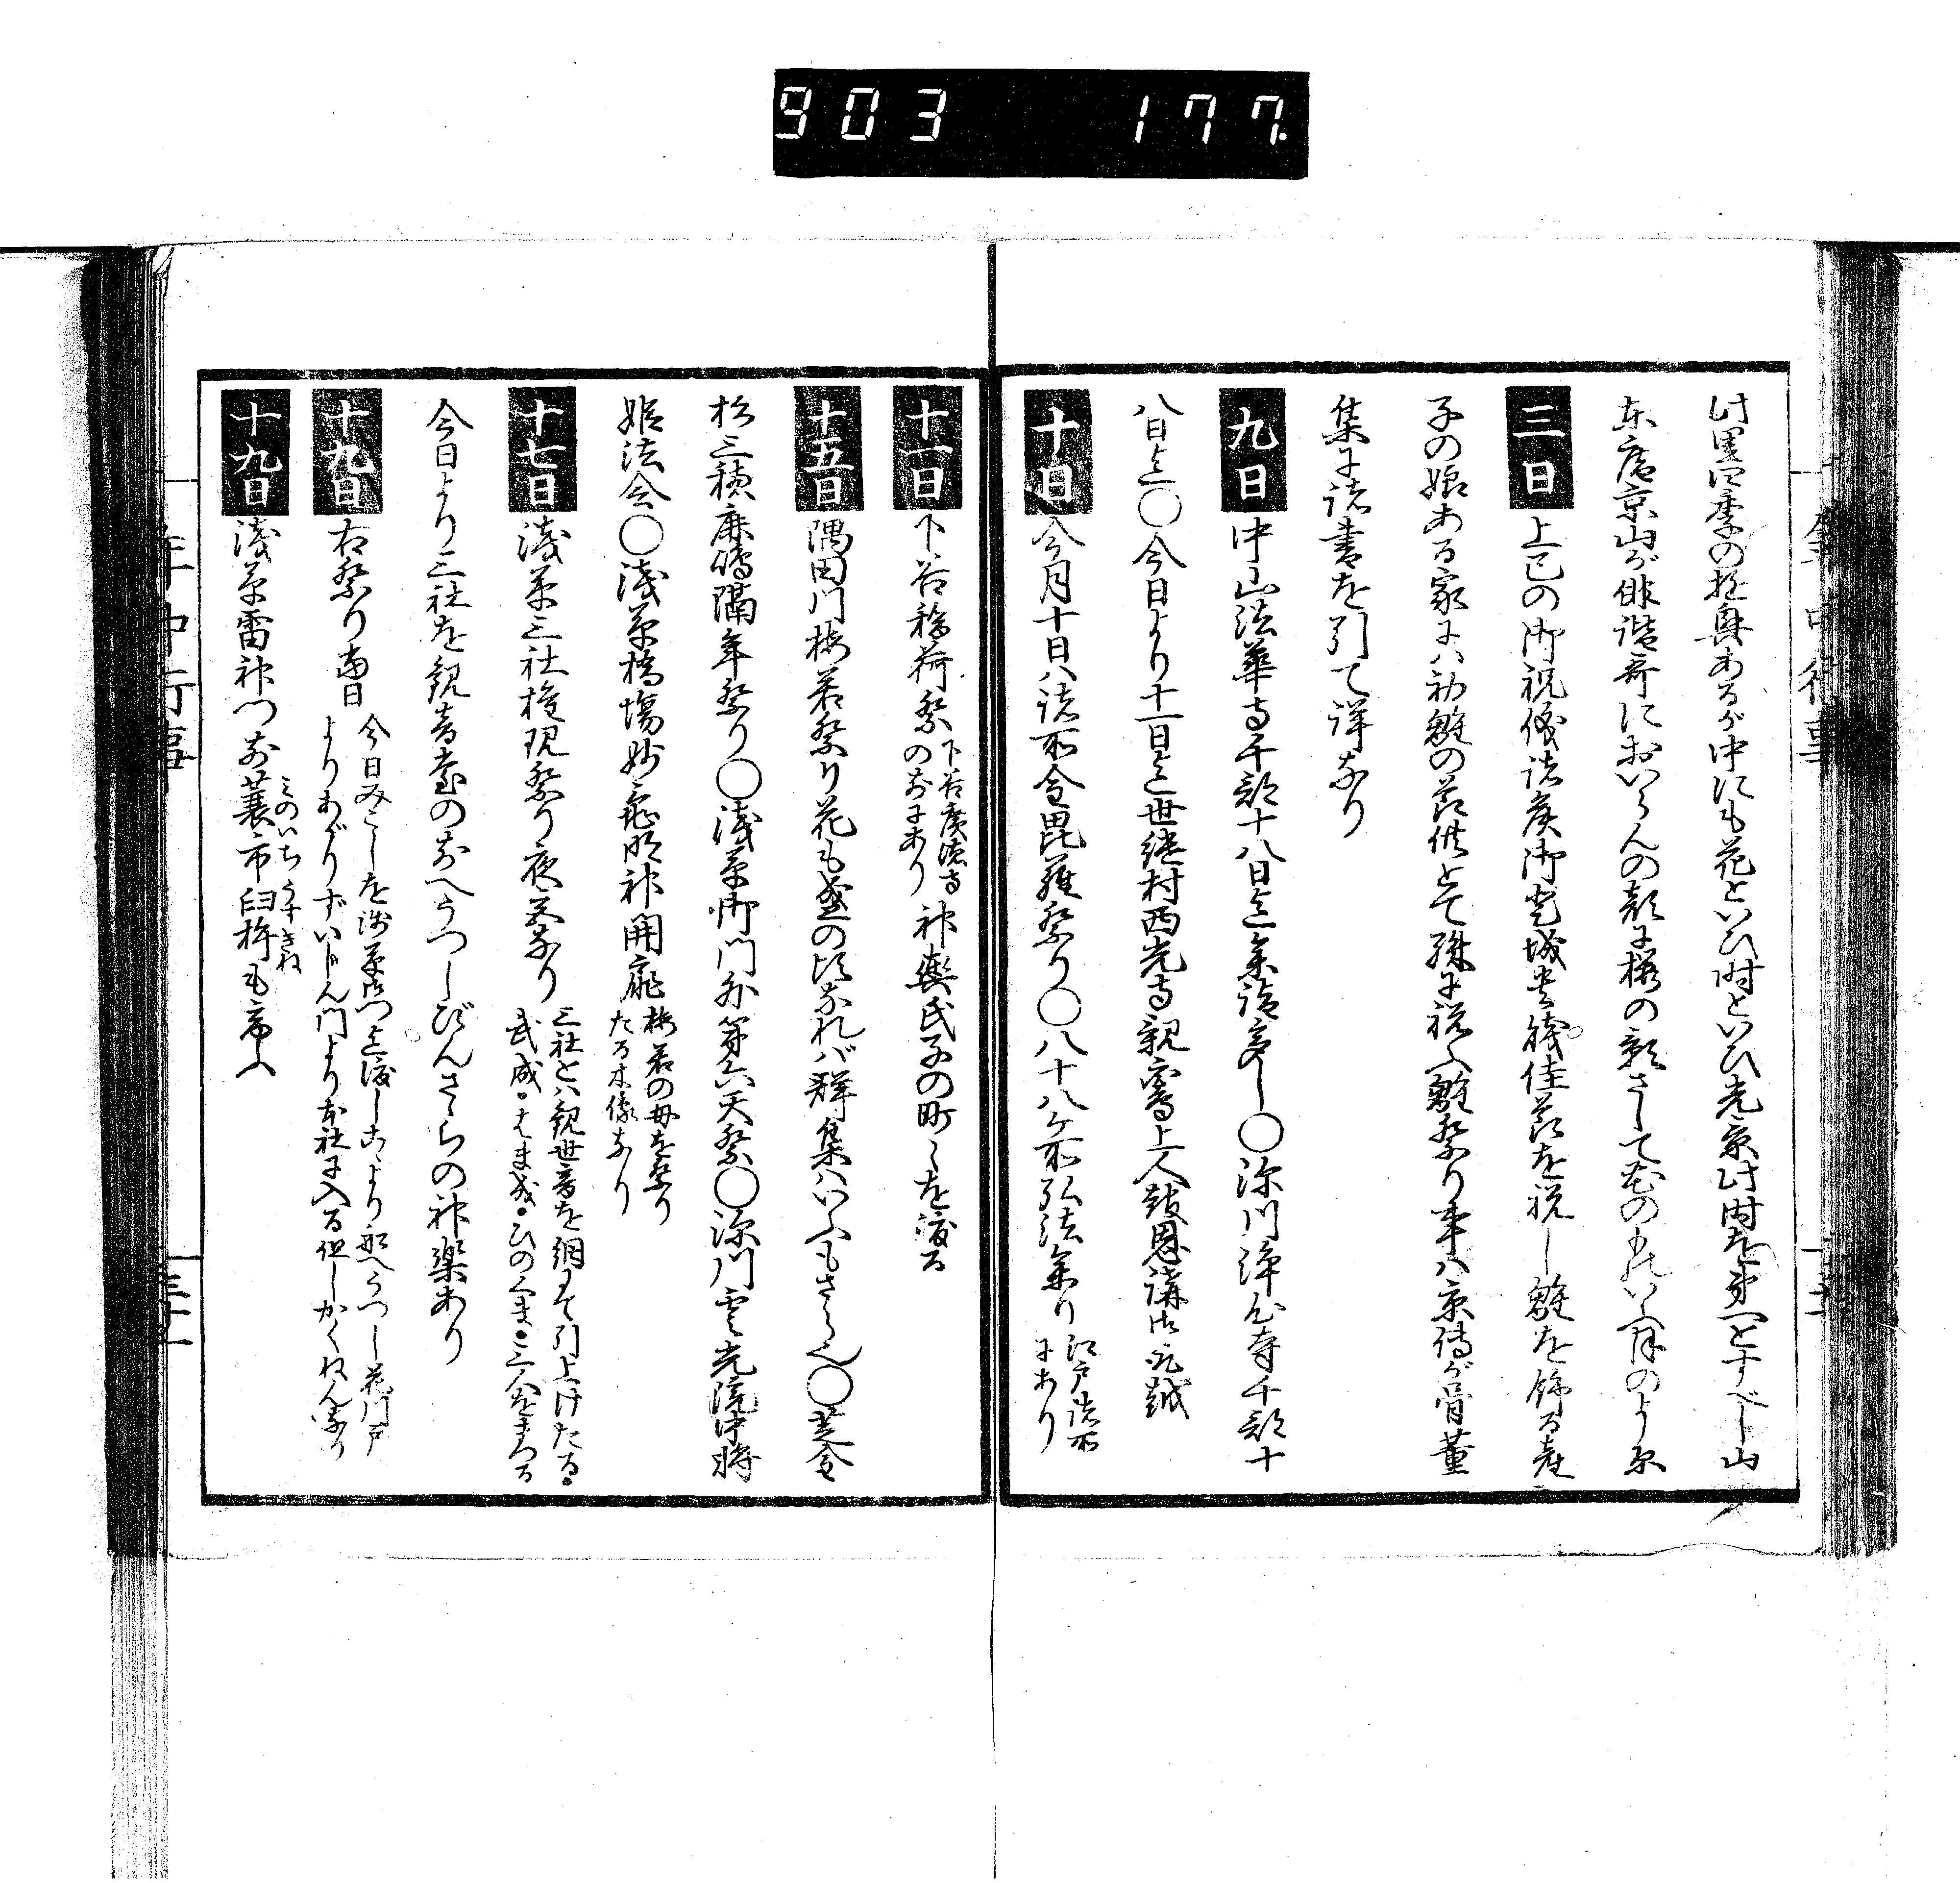 903 177
此里四季の遊興あるが中にも花といひ時といひ光景此時を第一とすべし山
東庵京山が俳諧哥においらんの顔に桜の影さして
三日 上巳の御祝儀諸侯御登城貴賤佳節を祝し雛を飾る産
子の娘ある家にハ初雛の節供とて殊に祝ふ雛祭り事ハ京傳が骨董
集に諸書を引て詳なり
九日 中山法華寺千部十八日迄参詣多し○深川浄心寺千部十
八日迄○今日より十一日迄世継村西光寺親鸞上人報恩講
十日 今月十日ハ諸所金毘羅祭り○八十八ケ所弘法参り 江戸諸所
にあり
十一日 下谷稲荷祭 下谷廣徳寺
の前にあり 神輿氏子の町々を渡る
十五日 隅田川梅若祭り花も盛の頃なれバ群集ハいふもさら也○芝金
杉三穂庭鴫隔年祭り○浅草御門外第六天祭○深川霊光院中将
姫法会○浅草橋場妙亀明神開扉 梅若の母を祭り
たる木像なり
十七日 浅草三社権現祭り夜宮なり 三社とハ観世音を網にて引上けたる・
武成・はま成・ひのくま・三人をまつる
今日より三社を観音堂の前へうつしびんざゝらの神楽あり
十九日 右祭り当日 今日みこしを浅草御門迄渡しこれより船へうつし花川戸
よりあがりずいじん門より本社に入る但しかくねんなり
十九日 浅草雷神門前蓑市臼杵も商ふ
みのいち うすきね
年中行事
年中行事